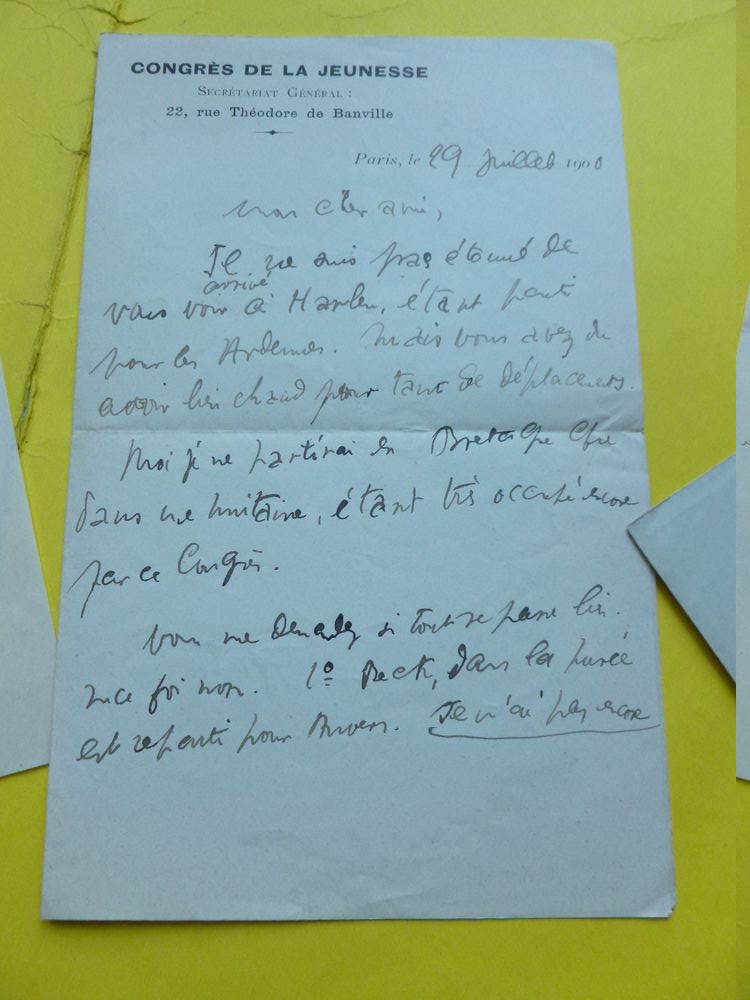 CONGRÈS DE LA JEUNESSE
SECRÉTARIAT GÉNÉRAL :
22, rue Théodore de Banville
Paris, le 29 Juillet 1900
Mon cher ami,
Je ne suis pas étonné de
arrivé
vous voir à Harlem, étant parti
pour les Ardennes. Mais vous avez du
avoir bien chaud pour tant de déplacements.
Moi je ne partirai en Bretagne que
dans une huitaine, étant très occupé encore
par ce Congrès.
Vous me demandez si tout se passe bien.
ma foi non. 1º Beck, dans la purée
est reparti pour Anvers. Je n'ai pas encore